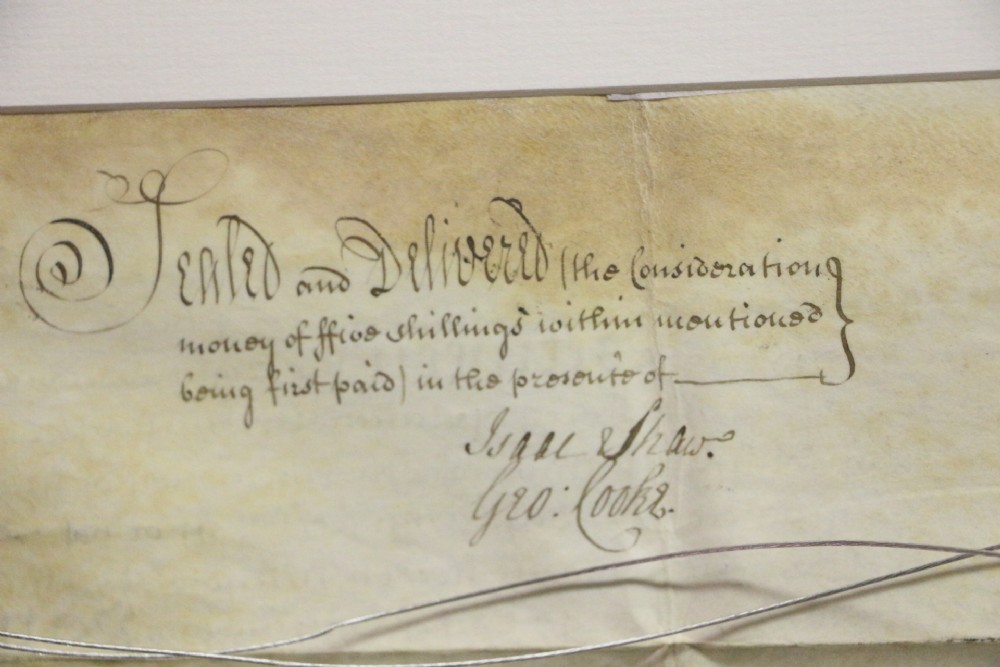 Sealed and Delivered (the Consideration
money of ffive shillings within mentioned
being first paid) in the presence of
Isaac Shaw.
Geo: Cooke.